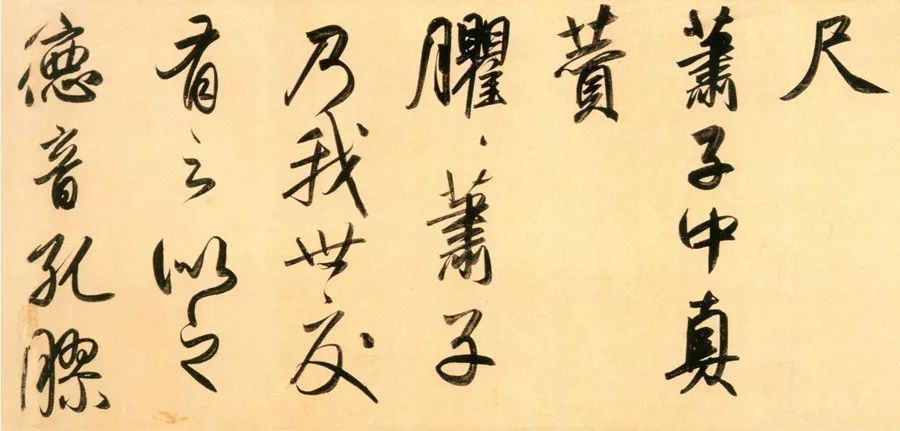 尺
蕭子中真
贊
臞、蕭子
乃我世交
有之似之
德音孔膠